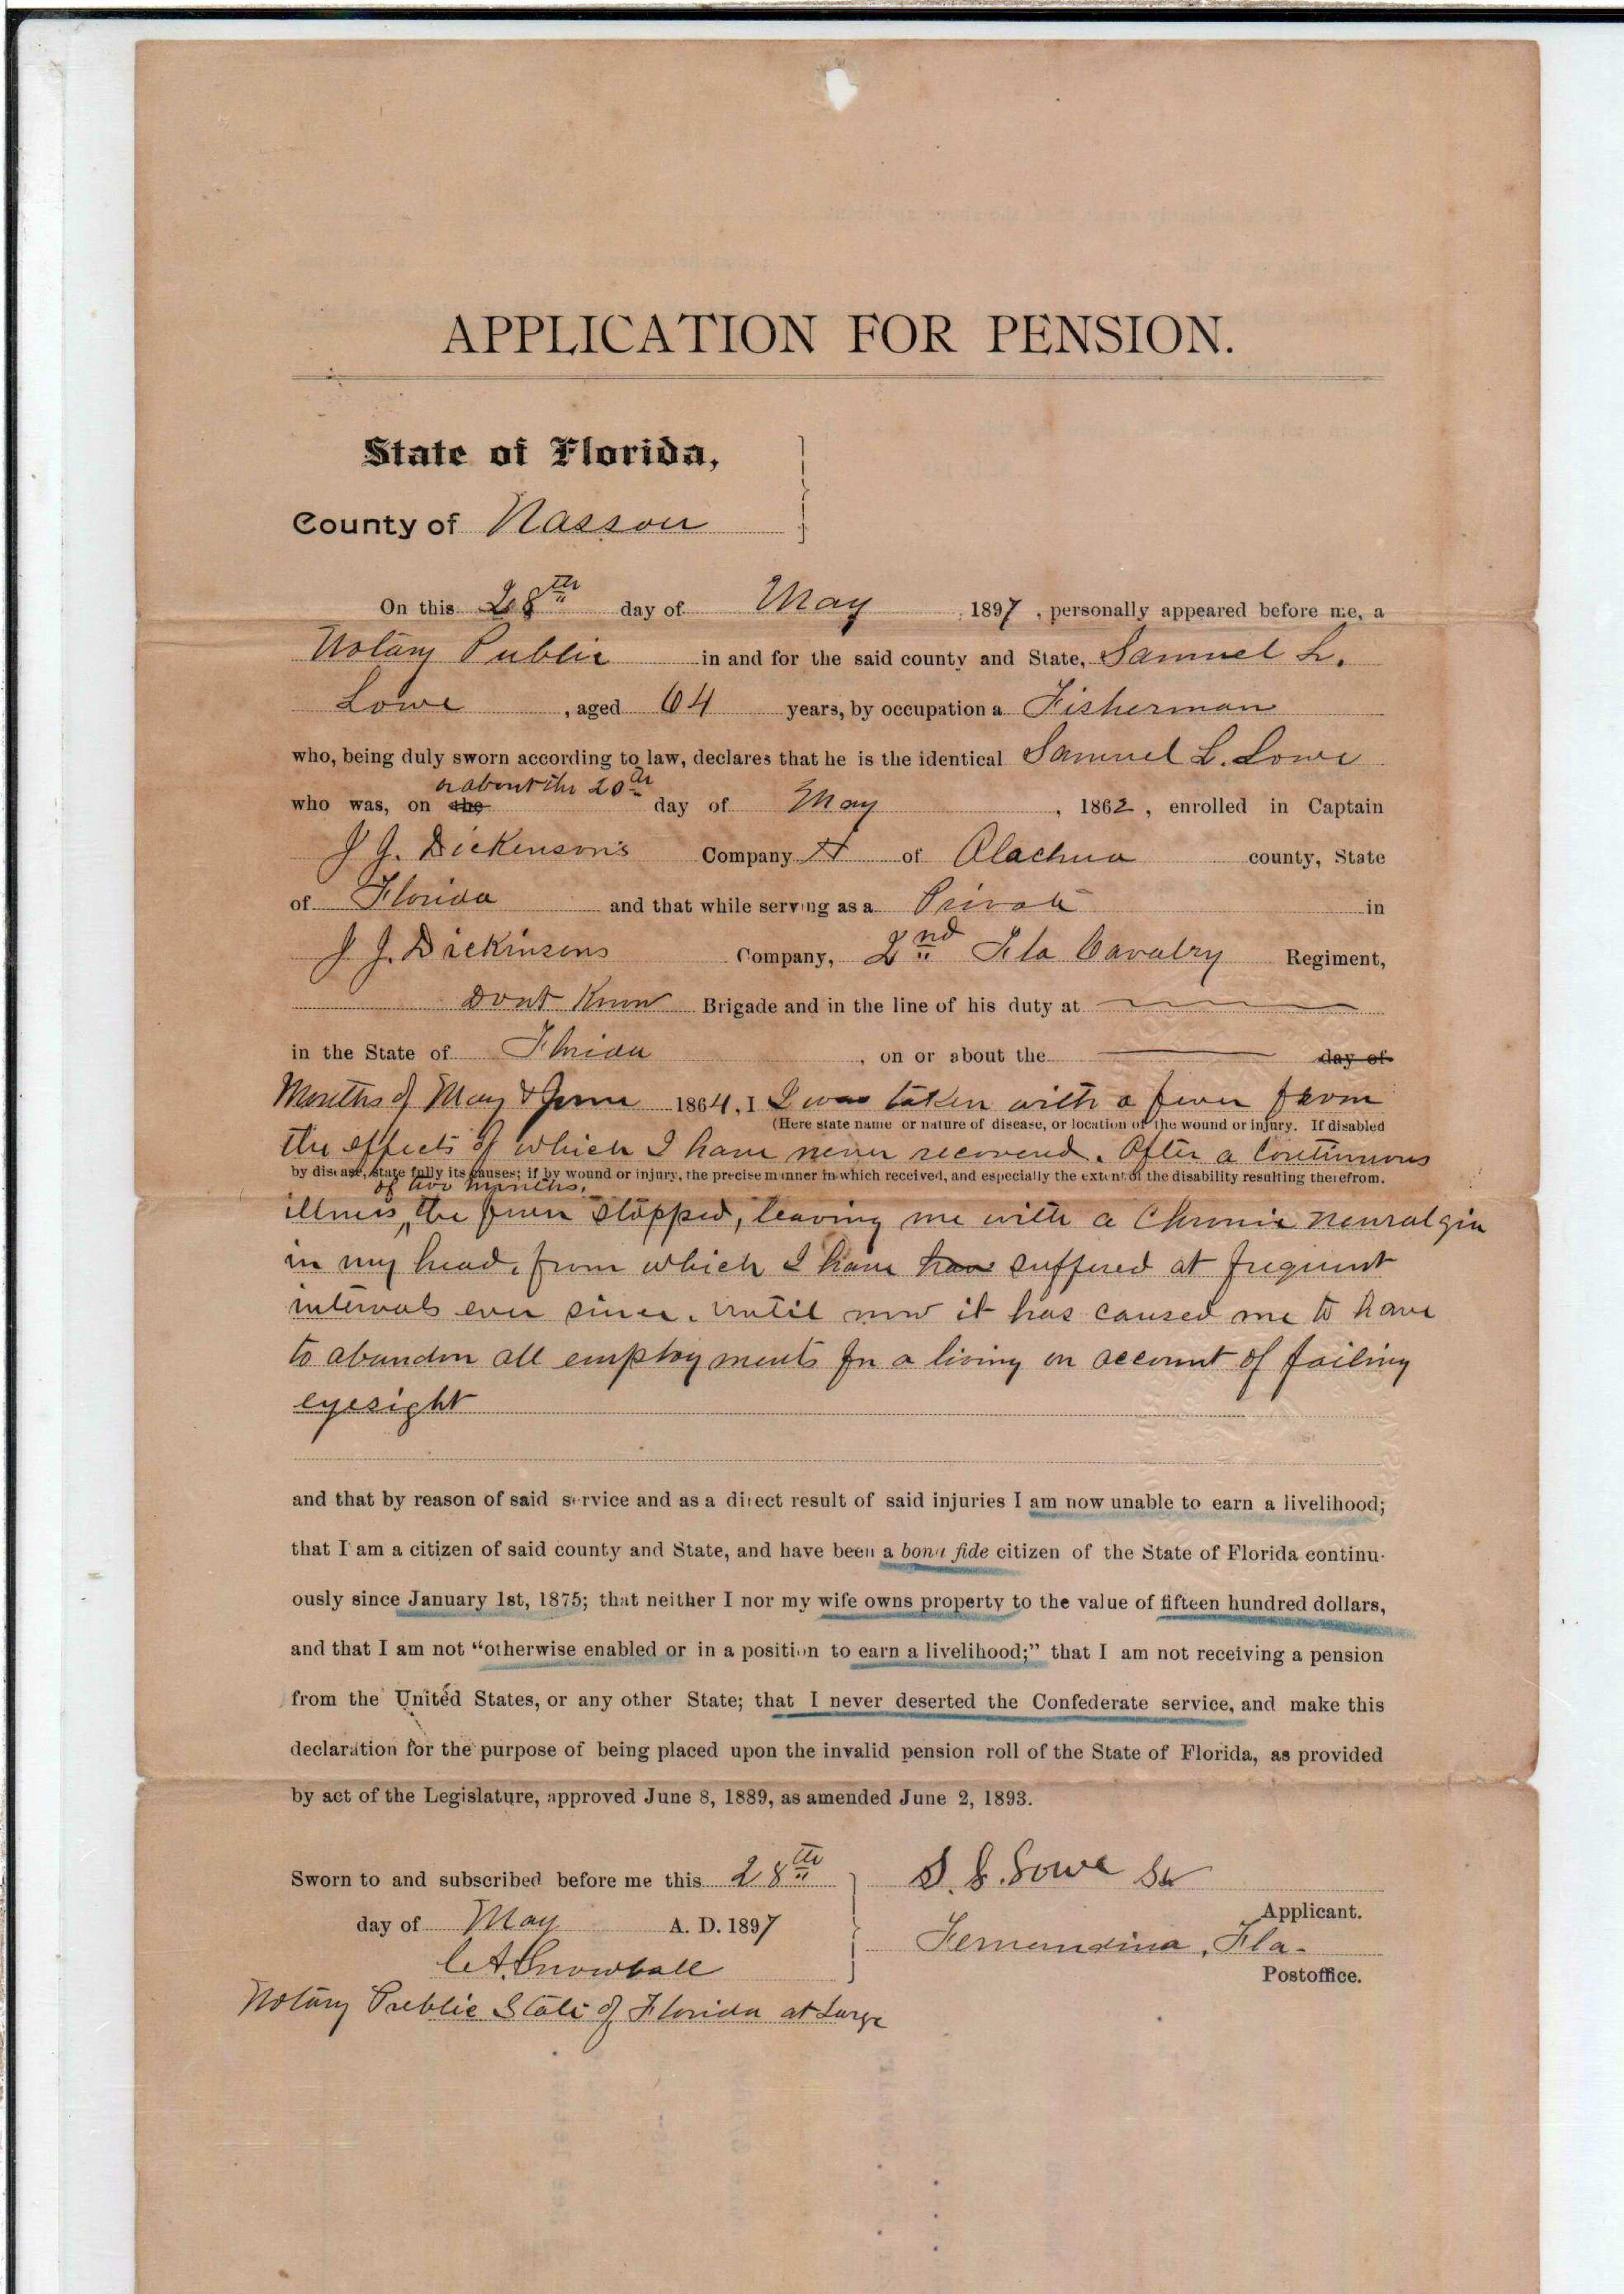 APPLICATION FOR PENSION.
State of Florida,
County of Nassau
On this 28th day of May, 1897, personally appeared before me, a
Notary Public in and for the said county and State, Samuel L.
Lowe, aged 64 years, by occupation a Fisherman
who, being duly sworn according to law, declares that he is the identical Samuel L. Lowe
or about the 20th
who was, on the day of May, 1862, enrolled in Captain
J J. Dickenson's Company H of Alachua county, State
of Florida and that while serving as a Private in
J J. Dickinsons Company, 2nd Fla Cavalry Regiment,
Dont Know Brigade and in the line of his duty at
in the State of Florida, on or about the day of
Months of May & June 1864, I I was taken with a fever from
(Here state name or nature of disease, or location of the wound or injury. If disabled
the effects of which I have never recovered. After a continuous
by disease, state fully its causes; if by wound or injury, the precise manner in which received, and especially the extent of the disability resulting therefrom.
of two months,
illness, the fever stopped, leaving me with a Chronic neuralgia
in my head, from which I have have suffered at frequent
intervals ever since. Until now it has caused me to have
to abandon all employments for a living on account of failing
eyesight
and that by reason of said service and as a direct result of said injuries I am now unable to earn a livelihood;
that I am a citizen of said county and State, and have been a bona fide citizen of the State of Florida continu-
ously since January 1st, 1875; that neither I nor my wife owns property to the value of fifteen hundred dollars,
and that I am not "otherwise enabled or in a position to earn a livelihood;" that I am not receiving a pension
from the United States, or any other State; that I never deserted the Confederate service, and make this
declaration for the purpose of being placed upon the invalid pension roll of the State of Florida, as provided
by act of the Legislature, approved June 8, 1889, as amended June 2, 1893.
Sworn to and subscribed before me this 28th
day of May A. D. 1897
C A. Snowball
Notary Public State of Florida at Large
S. L. Lowe Sr
Applicant.
Fernandina, Fla-
Postoffice.